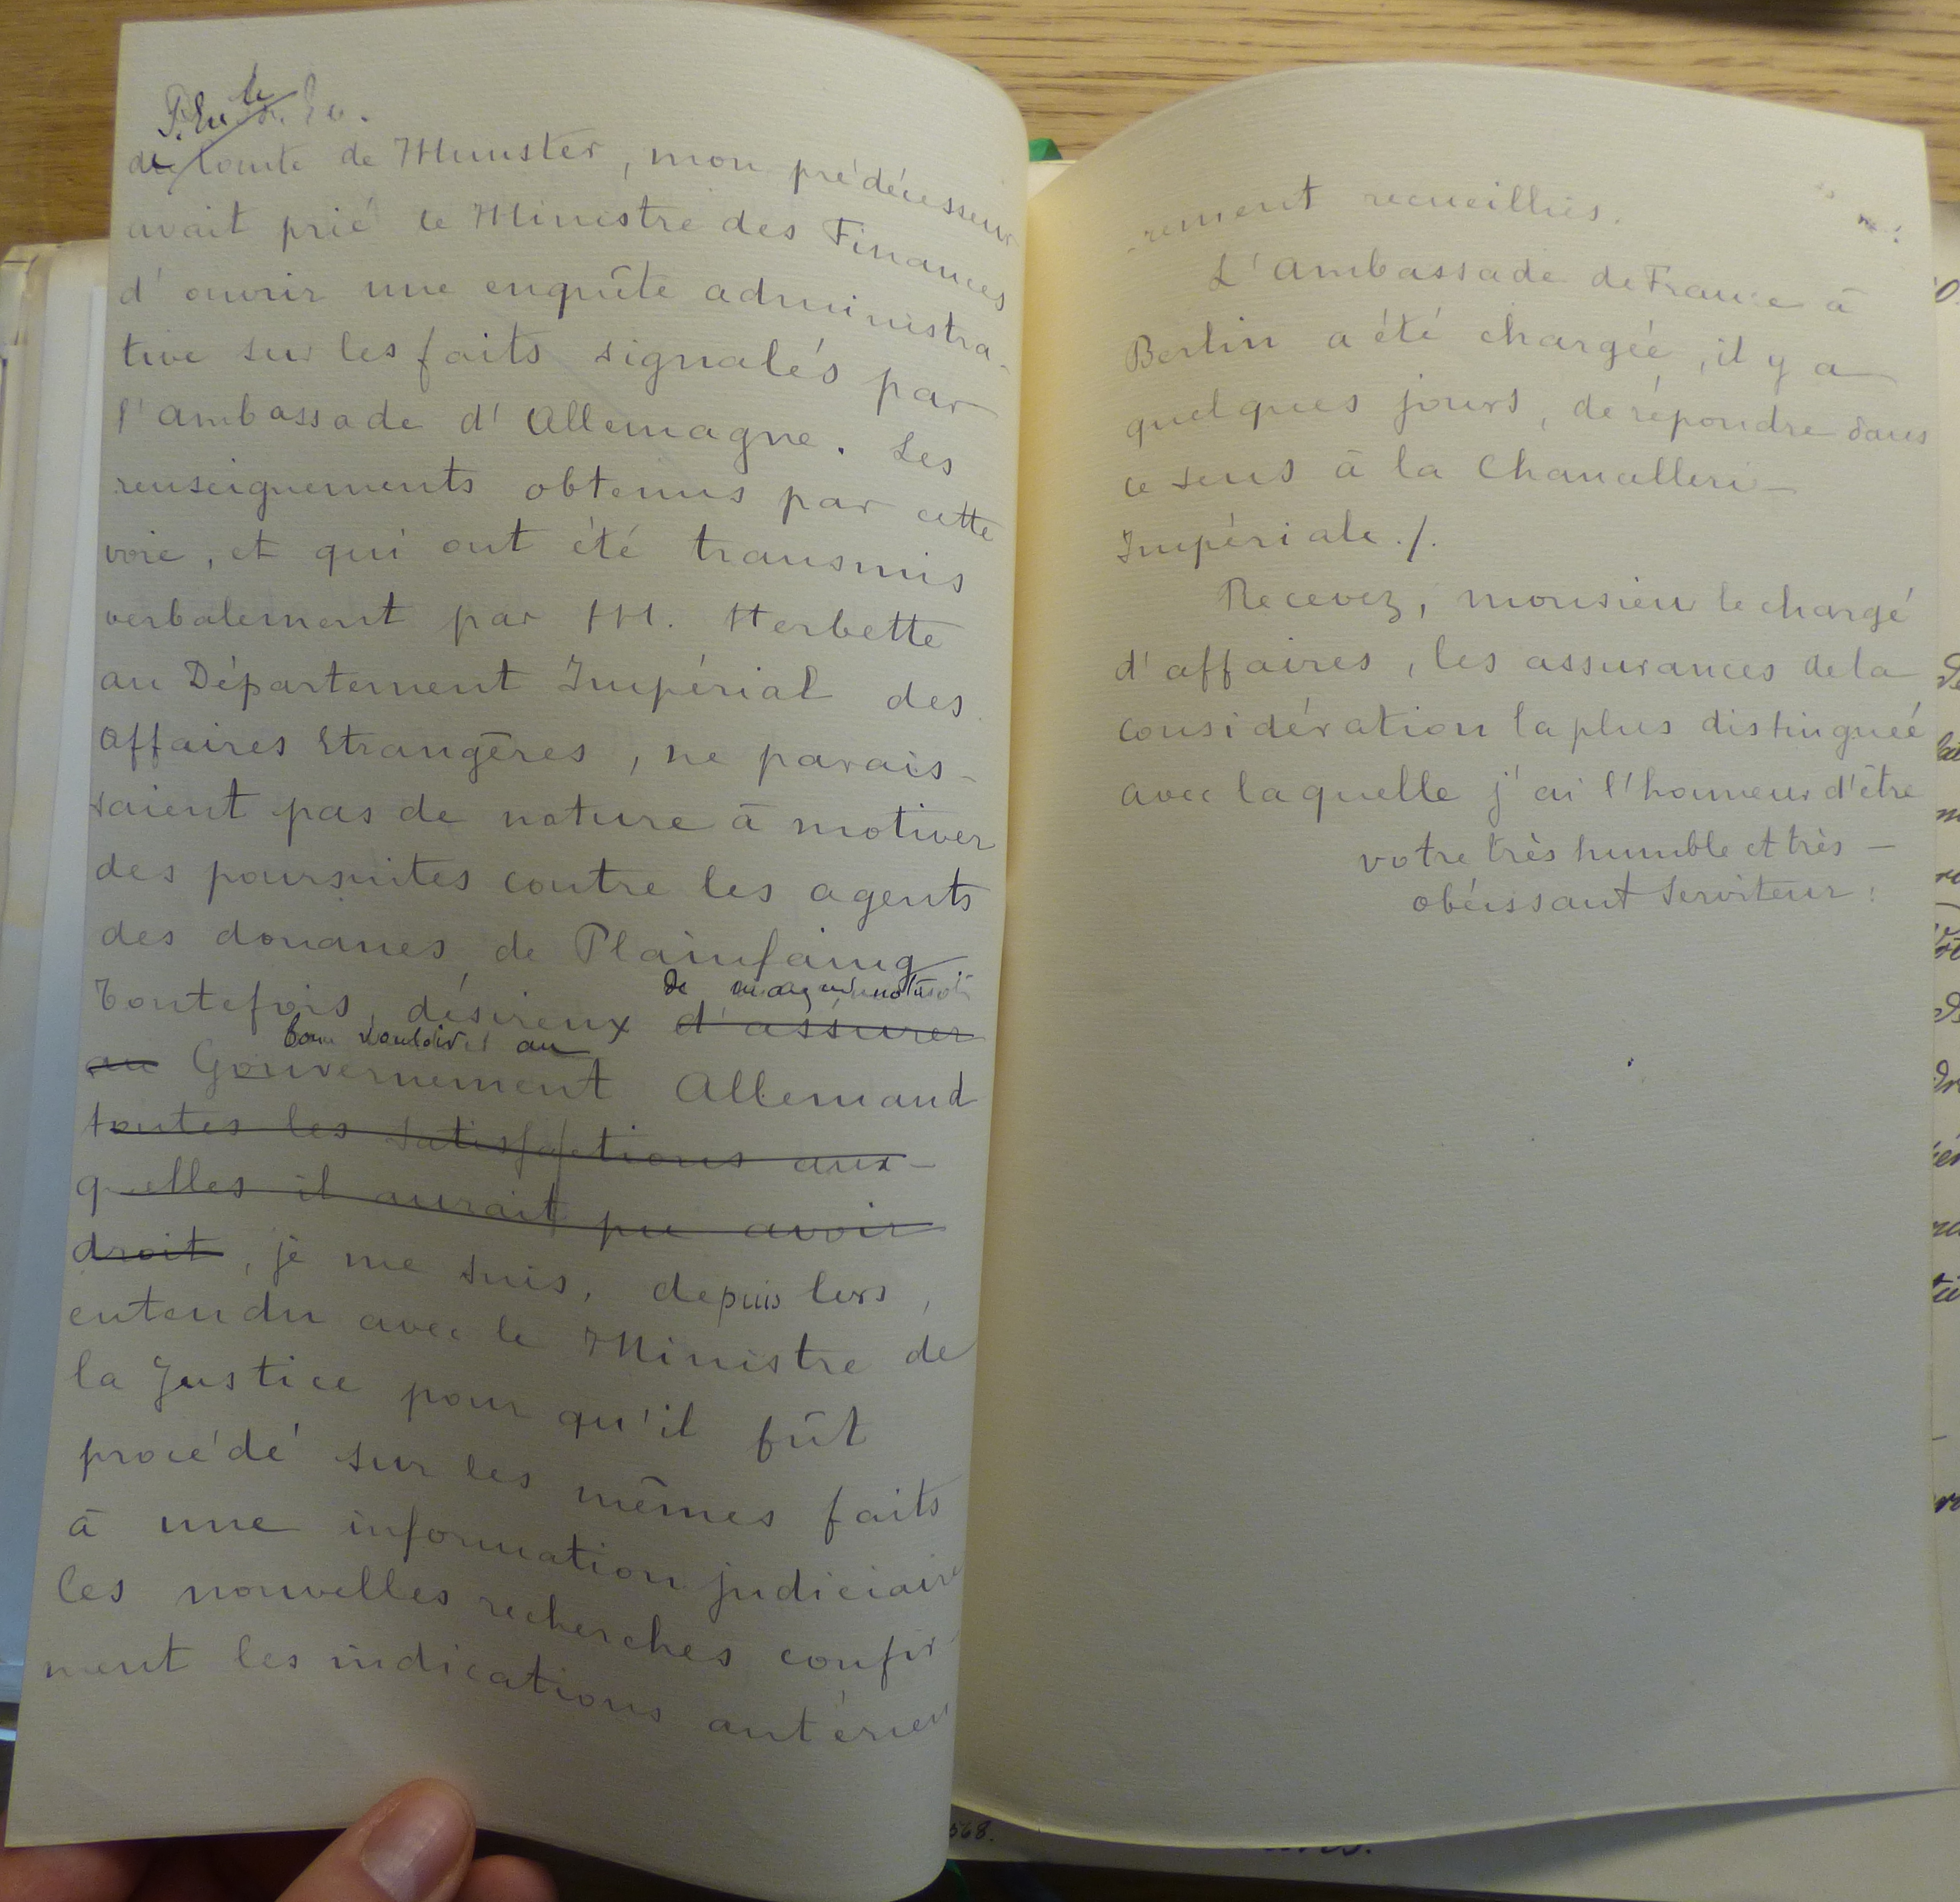 le
de Comte de Munster, mon prédécesseur
avait prié le Ministre des Finances
d'ouvrir une enquête administra-
tive sur les faits signalés par
l'Ambassade d'Allemagne. Les
renseignements obtenus par cette
voie, et qui ont été transmis
verbalement par M. Herbette
au Département Impérial des
Affaires Etrangères, ne parais-
saient pas de nature à motiver
des poursuites contre les agents
des douanes de Plainfaing
de
Toutefois, désireux d'assurer
bon vouloir au
au Gouvernement Allemand
toutes les satisfactions aux-
quelles il aurait pu avoir
droit, je me suis, depuis lors,
entendu avec le Ministre de
la Justice pour qu'il fût
procédé sur les mêmes faits
à une information judiciaire
Ces nouvelles recherches confir-
ment les indications antérieu
-rement recueillies.
L'Ambassade de France à
Berlin a été chargée, il y a
quelques jours, de répondre dans
ce sens à la Chancellerie
Impériale./.
Recevez, monsieur le chargé
d'affaires, les assurances de la
considération la plus distinguée
avec laquelle j'ai l'honneur d'être
votre très humble et très -
obéissant serviteur :
568.